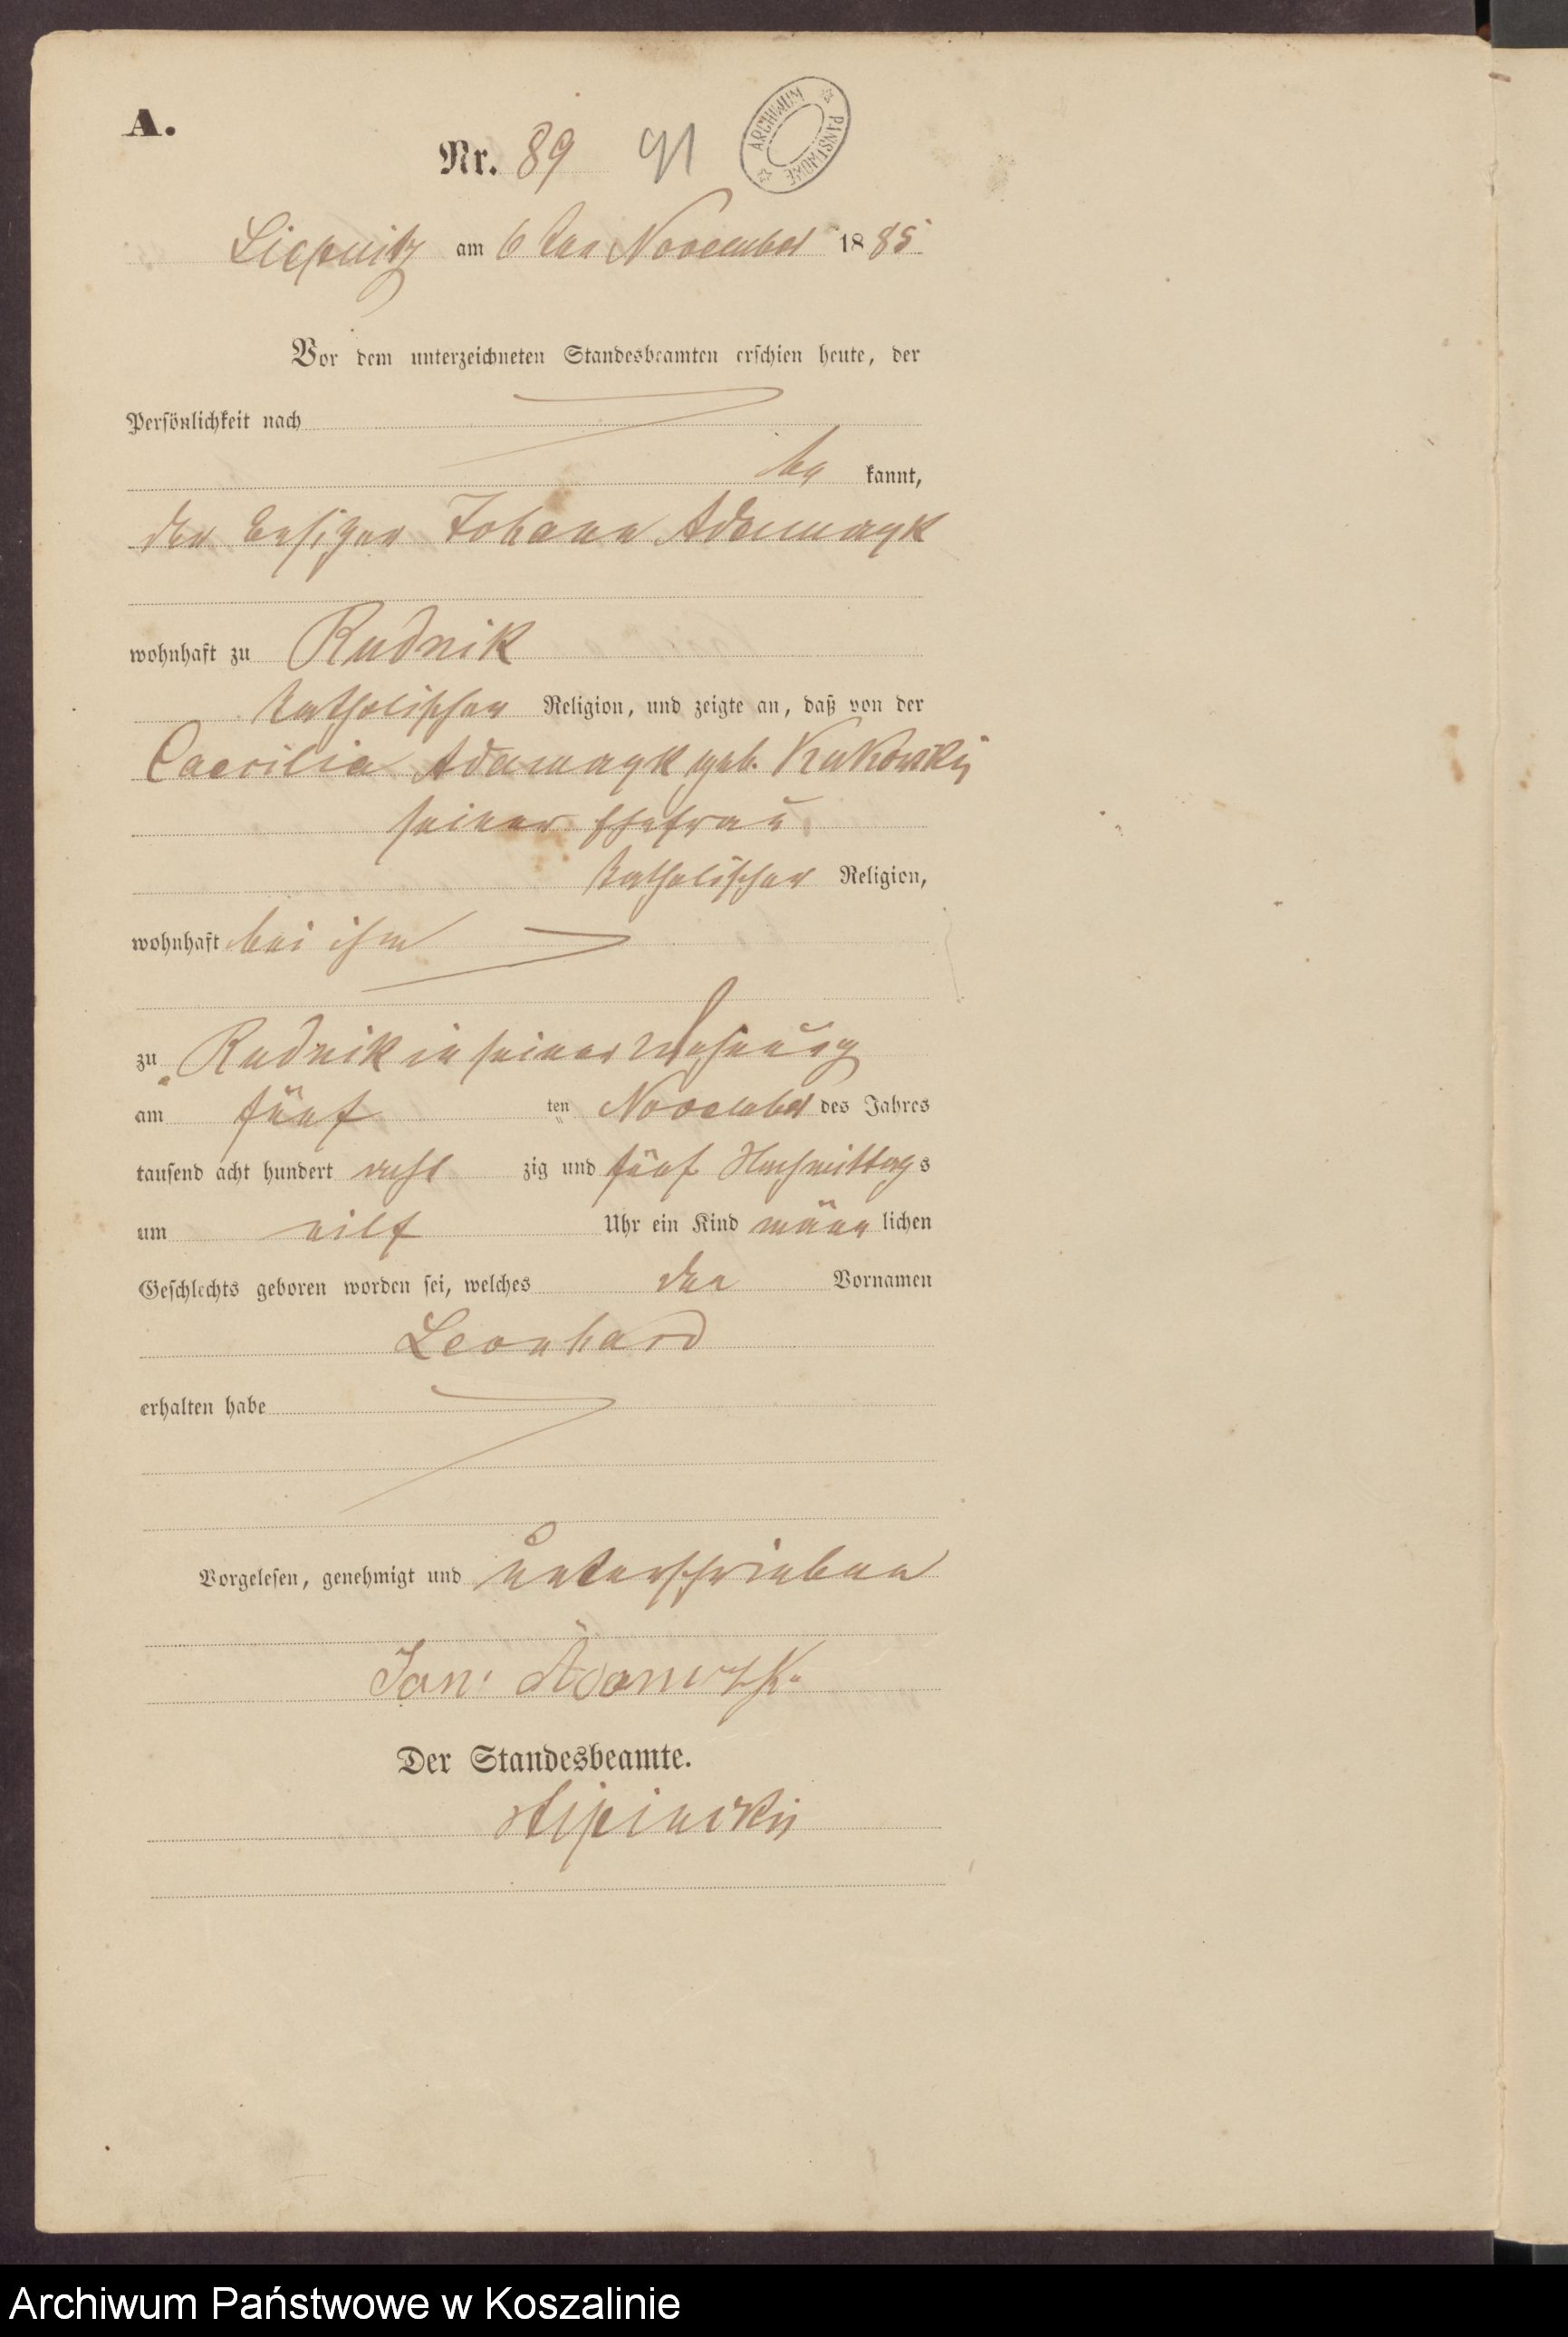 A.
Nr. 89 91
ARCHIWUM PAŃSTWOWE
Liepnitz am 6ten November 1885
Vor dem unterzeichneten Standesbeamten erschien heute, der
Persönlichkeit nach
be kannt,
der Besitzer Johann Adamczyk
wohnhaft zu Rudnik
katholischer Religion, und zeigte an, daß von der
Caecilia Adamczyk geb. Kukowski
seiner Ehefrau
katholischer Religion,
wohnhaft bei ihm
zu Rudnik in seiner Wohnung
am fünf ten November des Jahres
tausend acht hundert acht zig und fünf Nachmittags
um eilf Uhr ein Kind männ lichen
Geschlechts geboren worden sei, welches den Vornamen
Leonhard
erhalten habe
Vorgelesen, genehmigt und unterschrieben
Jan
Der Standesbeamte.
Archiwum Państwowe w Koszalinie